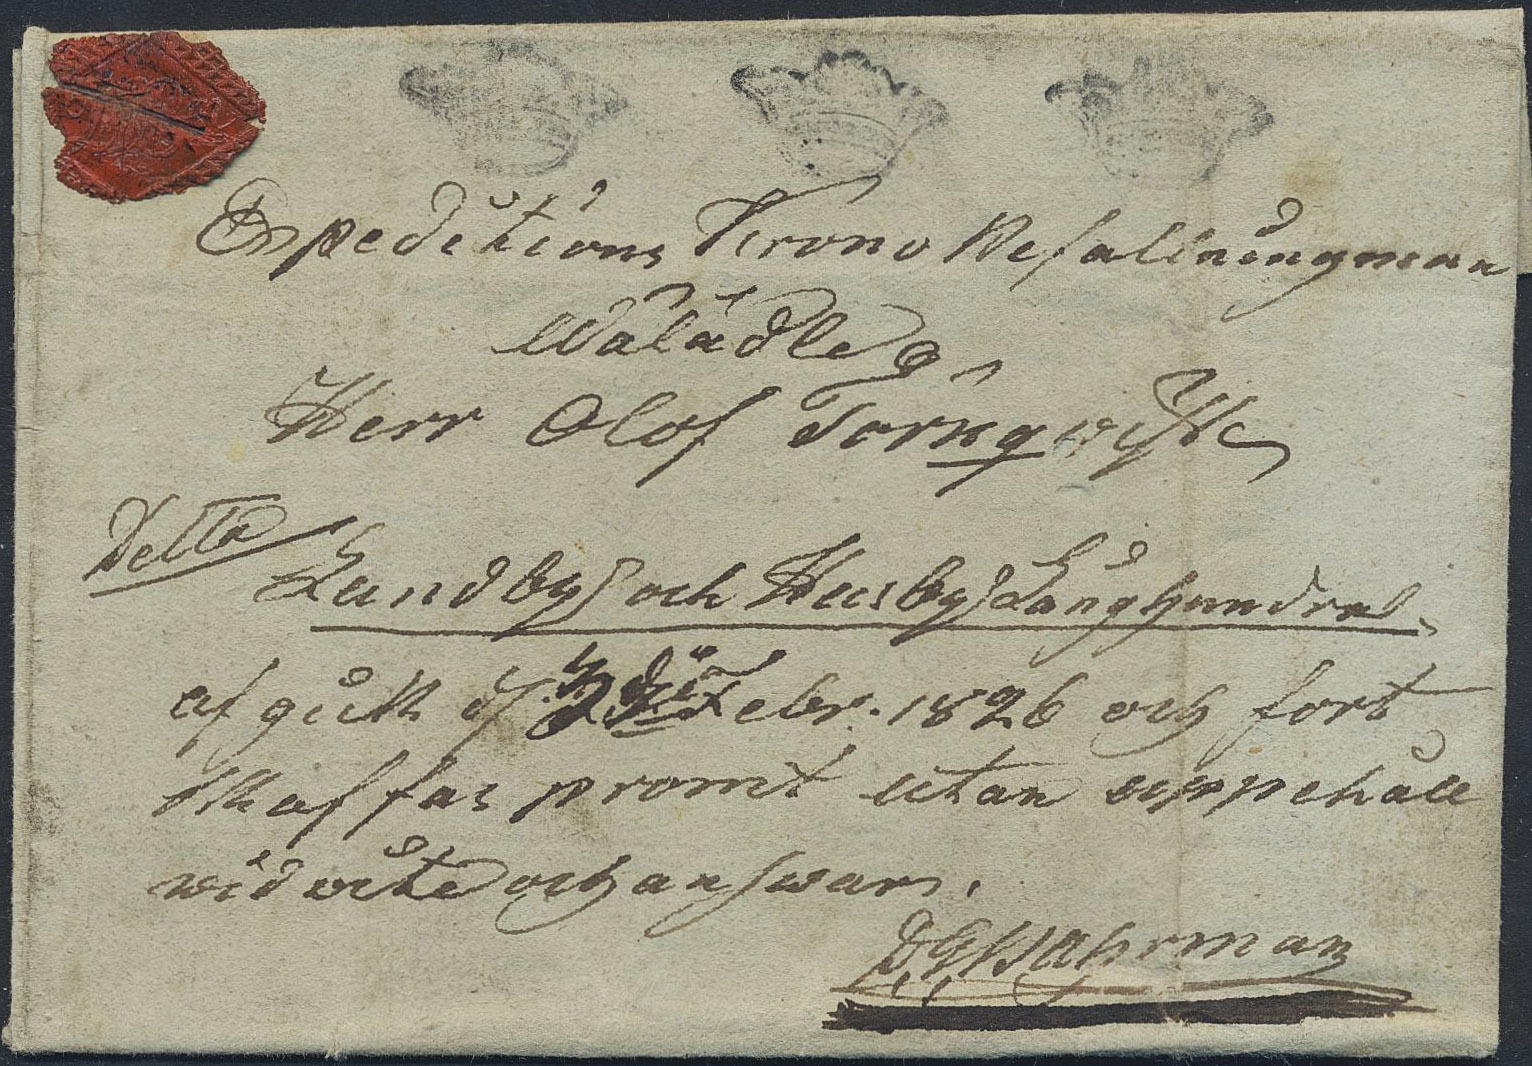 Expeditions Krono Befallningman
Wälädle
Herr Olof Törnqwist
Detta
Lundby och Husby Långhundra
afgick d. Febr. 1826 och fort
skaffas promt utan uppehåll
wid wite och answar.
D. G. Wahrman